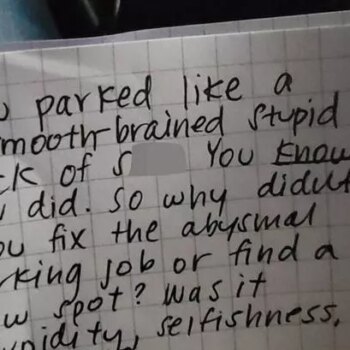 parked like a
mooth-brained stupid
ck of s You know
did. so why didnt
ou fix the abysmal
rking job or find a
w spot? was it
upidity, selfishness,